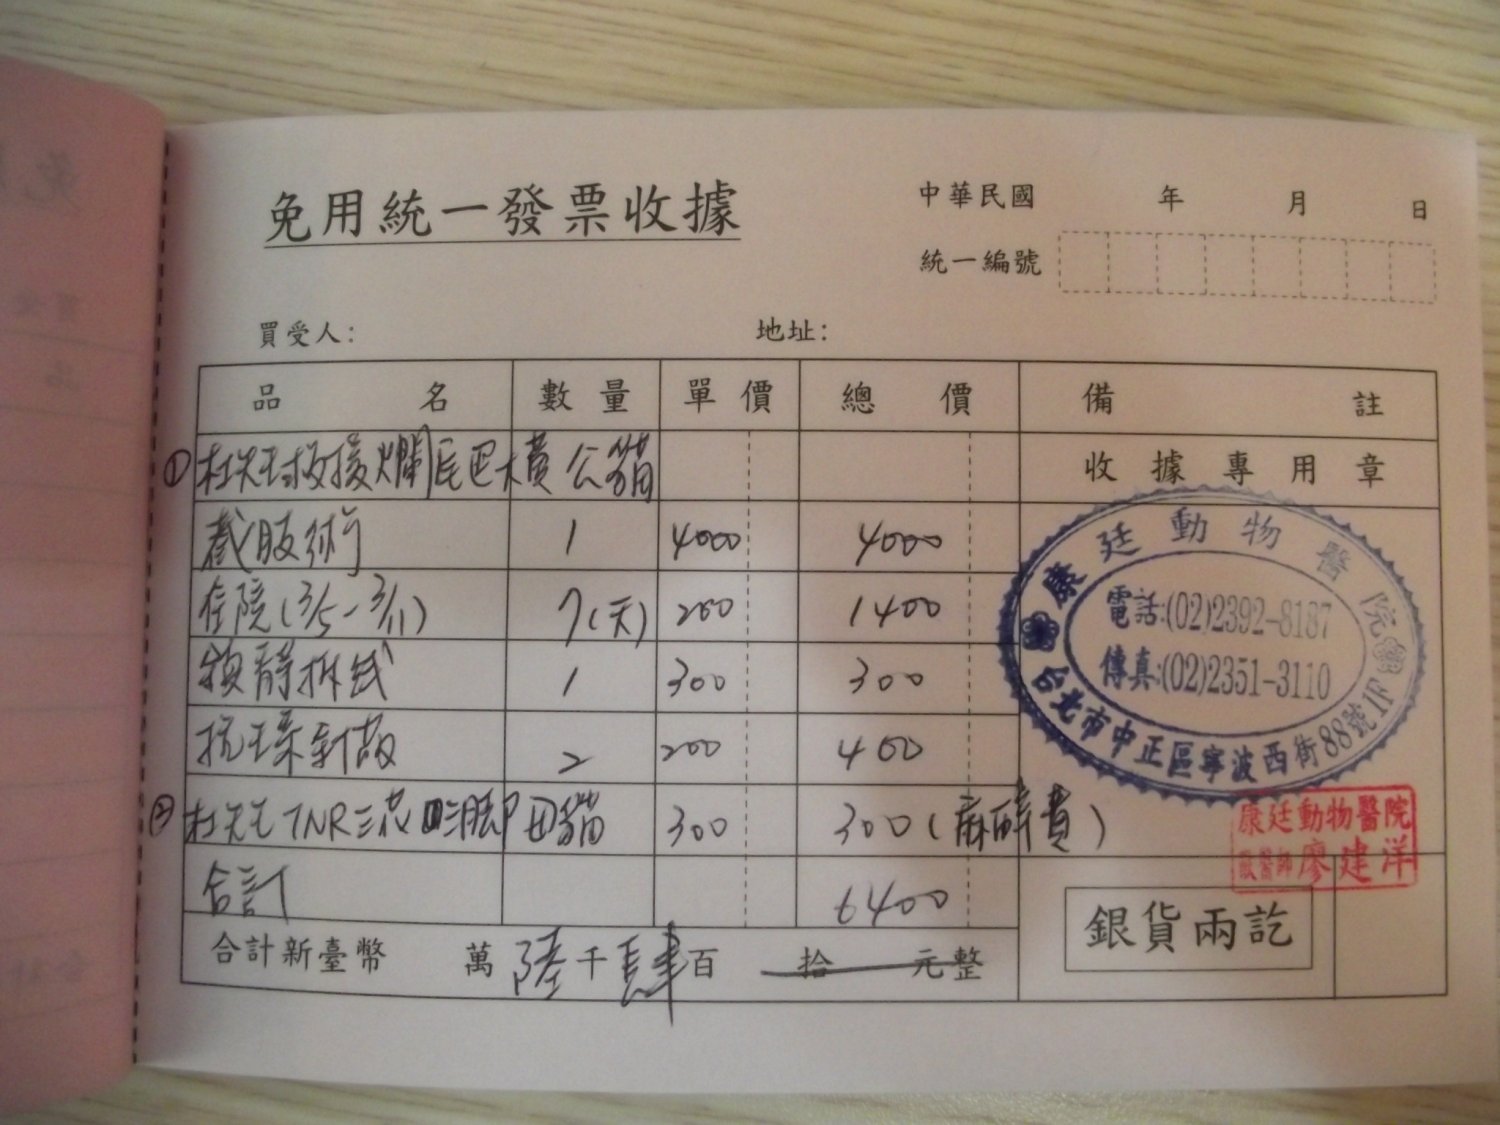 免用統一發票收據
中華民國 年 月 日
統一編號
買受人： 地址：
品名 數量 單價 總價 備註
① 救援爛尾巴橘公貓
收據專用章
截肢術 1 4000 4000
住院(3/5-3/11) 7(天) 200 1400
鎮靜拆線 1 300 300
抗 2 200 400
② TNR三花 貓 300 300(麻醉費)
合計 6400
合計新臺幣 萬 陸 千 肆 百 拾 元整
銀貨兩訖
康廷動物醫院
電話:(02)2392-8187
傳真:(02)2351-3110
台北市中正區寧波西街88號1F
康廷動物醫院
獸醫師 廖建洋